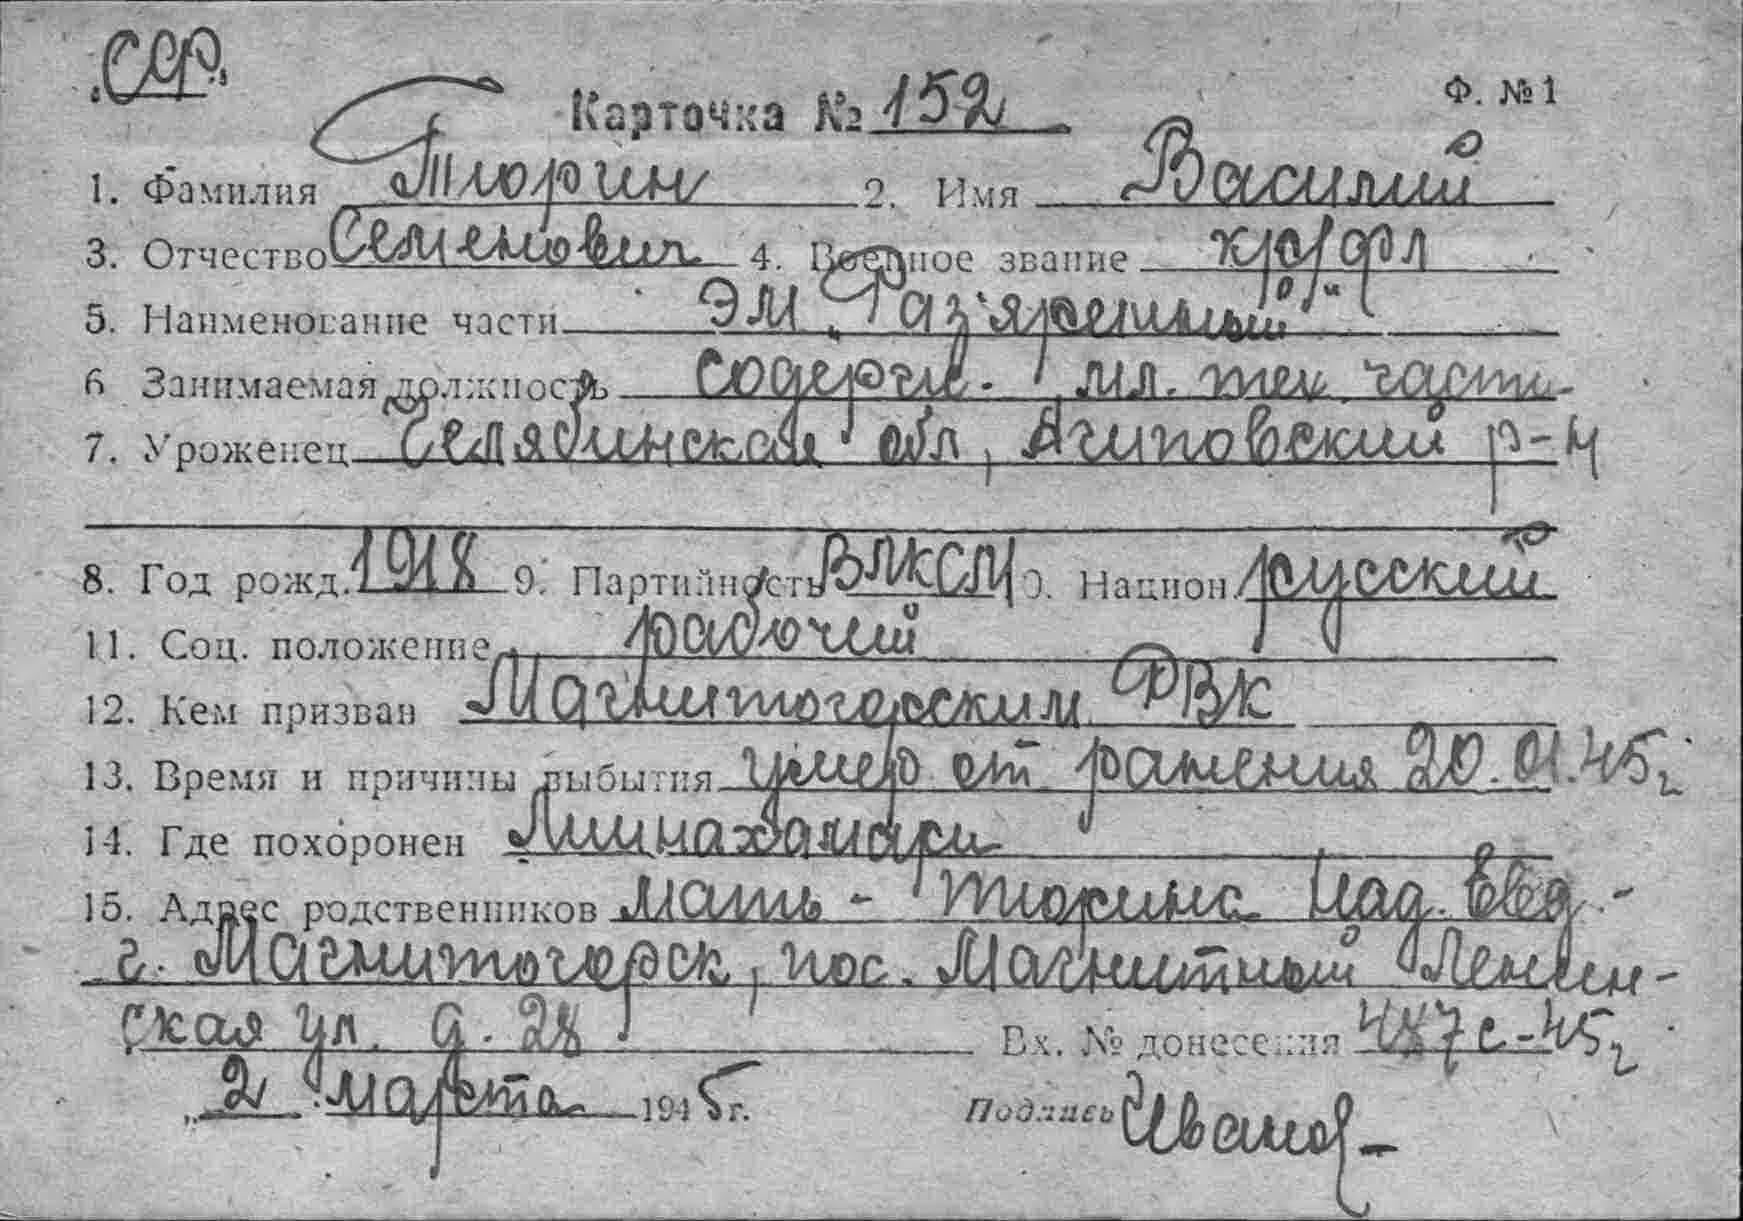 ССР.
Карточка № 152
Ф. № 1
1. Фамилия Тюрин 2. Имя Василий
3. Отчество Семенович 4. Военное звание кр/фл
5. Наименование части ЭМ „Разъяренный"
6 Занимаемая должность содерж. мл. тех. части
7. Уроженец Челябинская обл, Агиповский р-н
8. Год рожд. 1918 9. Партийность ВЛКСМ 10. Национ. русский
11. Соц. положение рабочий
12. Кем призван Магнитогорским РВК
13. Время и причины выбытия умер от ранения 20.01.45 г
14. Где похоронен Лиинахамари
15. Адрес родственников мать - Тюрина Над. Евд. -
г. Магнитогорск, пос. Магнитный Ленин-
ская ул. д. 28 Вх. № донесения 487с-45 г
„ 2 марта 1945 г. Подпись Иванов